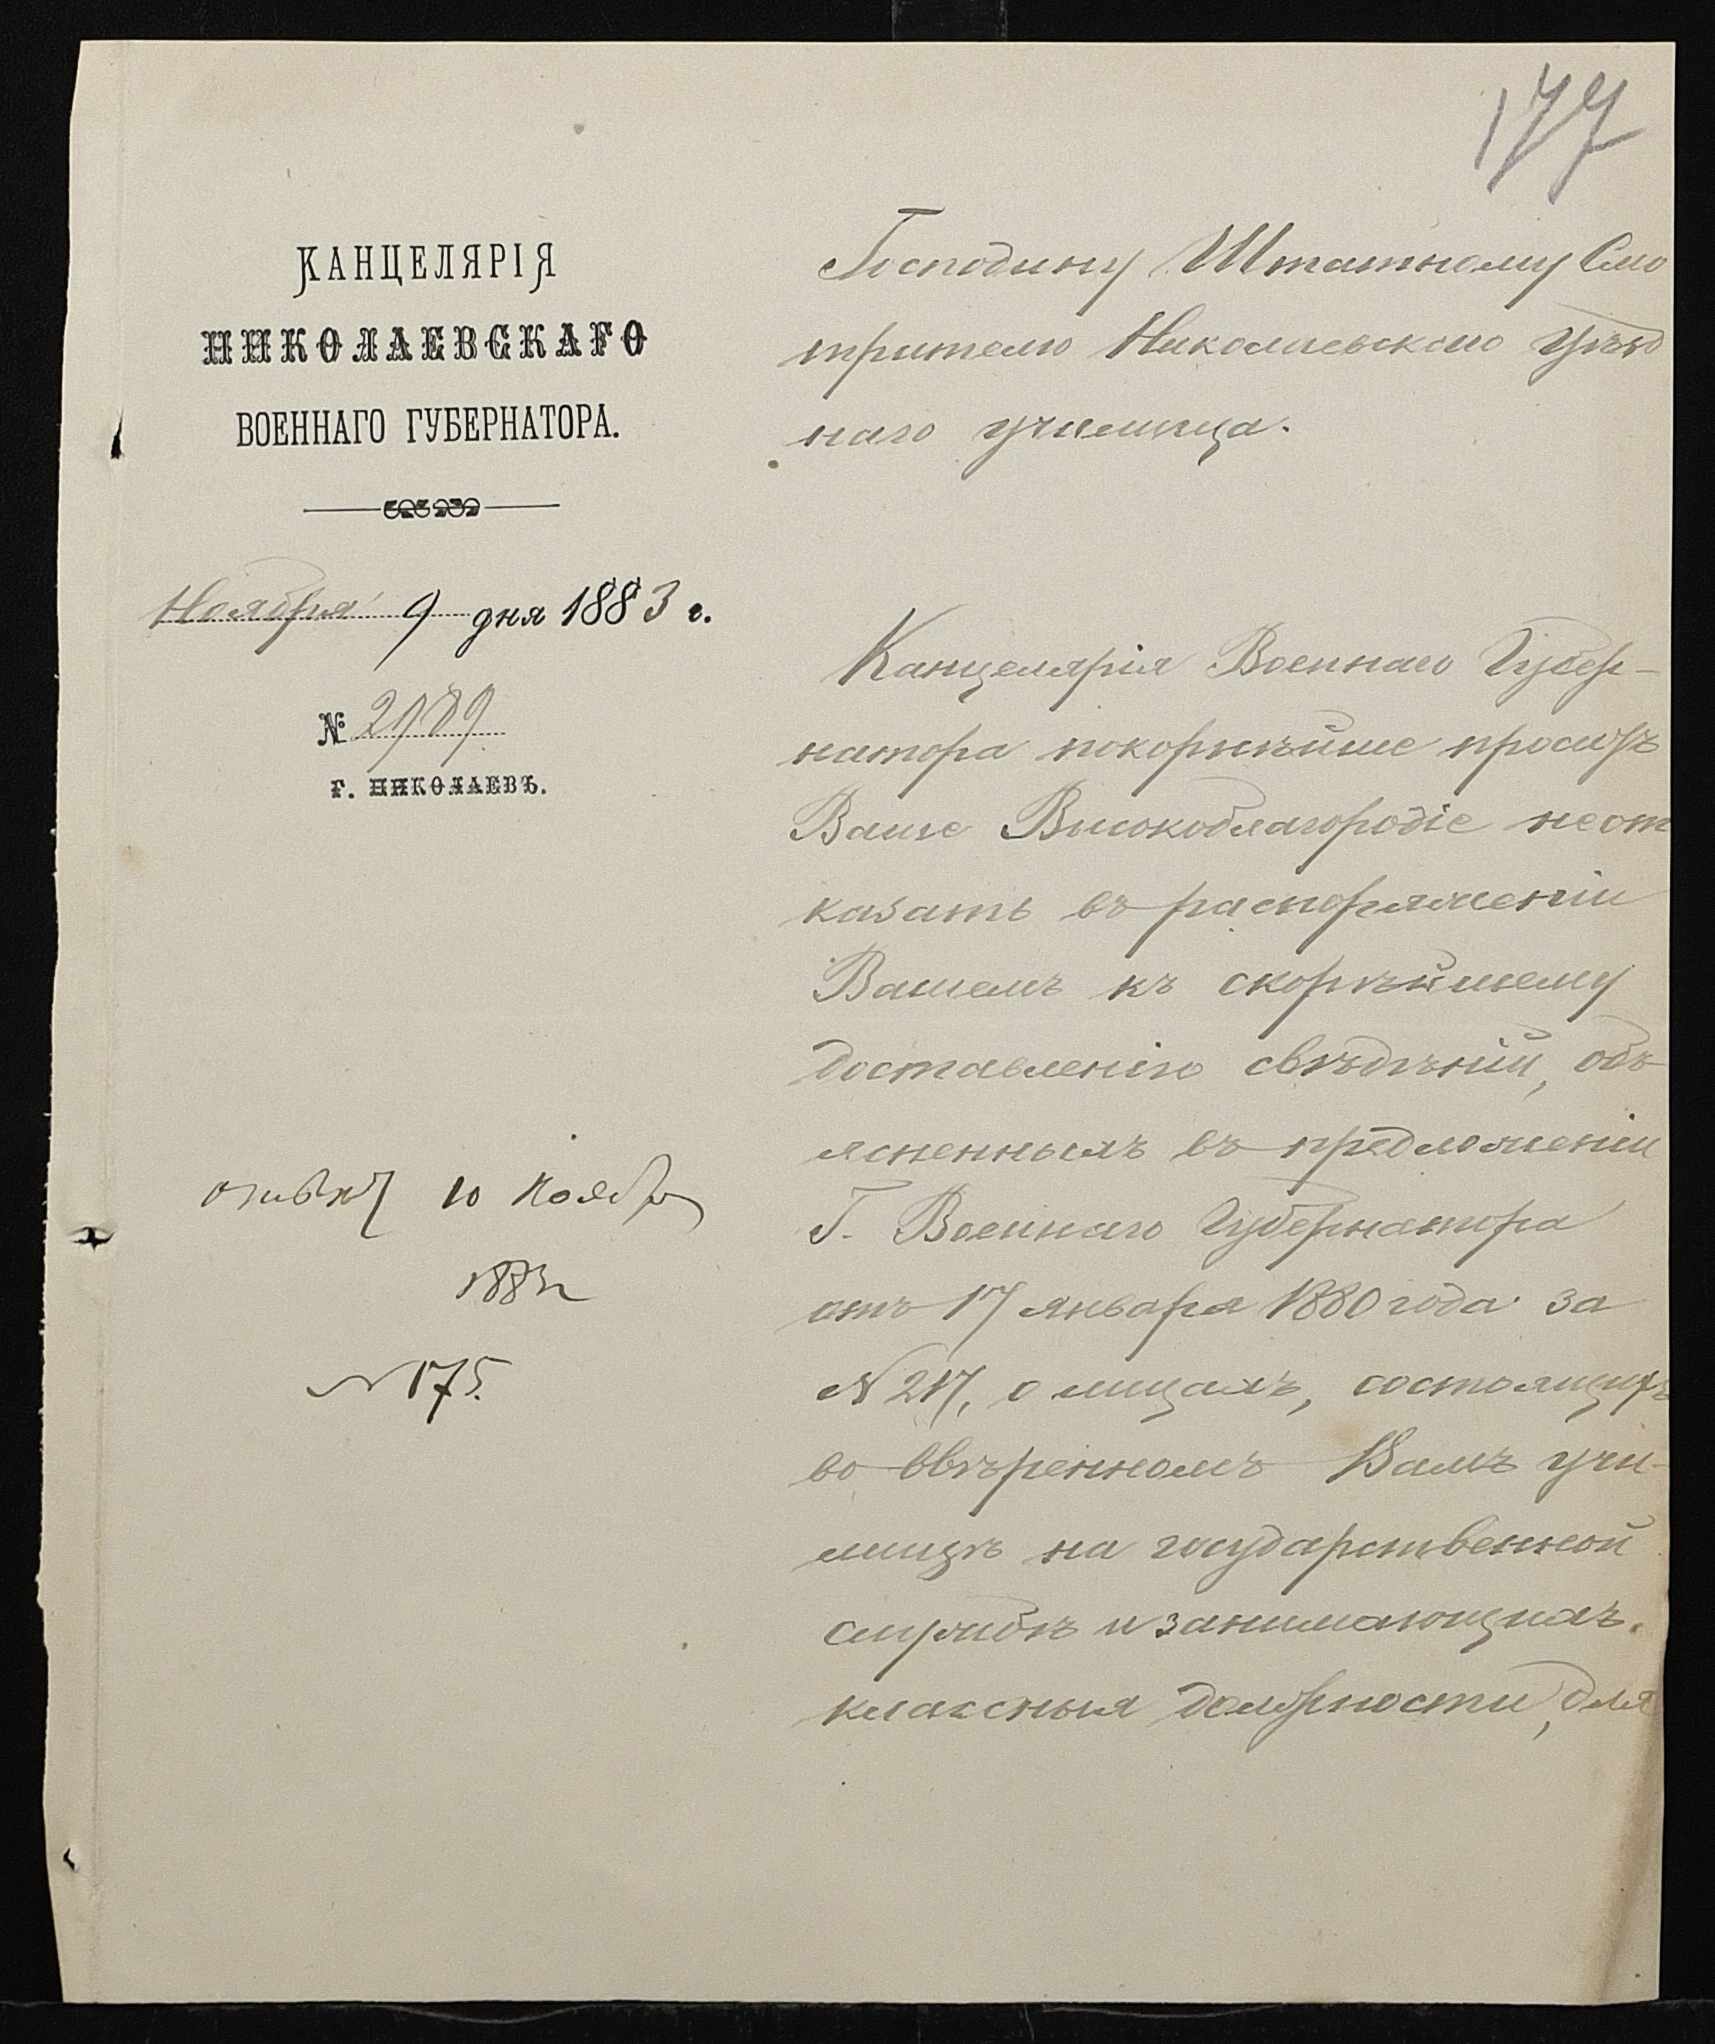 177
КАНЦЕЛЯРІЯ
НИКОЛАЕВСКАГО
ВОЕННАГО ГУБЕРНАТОРА.
Ноября 9 дня 1883 г.
№ 2989
г. НИКОЛАЕВЪ.
10 Ноябр
1883
№ 175.
Господину Штатному Смо
трителю Николаевскаго Уѣзд
наго училища.
Канцелярія Военнаго Губер-
натора покорнѣйше проситъ
Ваше Высокоблагородіе неот
казать въ распоряженіи
Вашемъ къ скорѣйшему
доставленію свѣдѣній, объ-
ясненныхъ въ предложеніи
Г. Военнаго Губернатора
отъ 17 января 1880 года за
№ 217, о лицахъ, состоящихъ
во ввѣренномъ Вамъ учи-
лищѣ на государственной
службѣ и занимающихъ
классныя должности, для